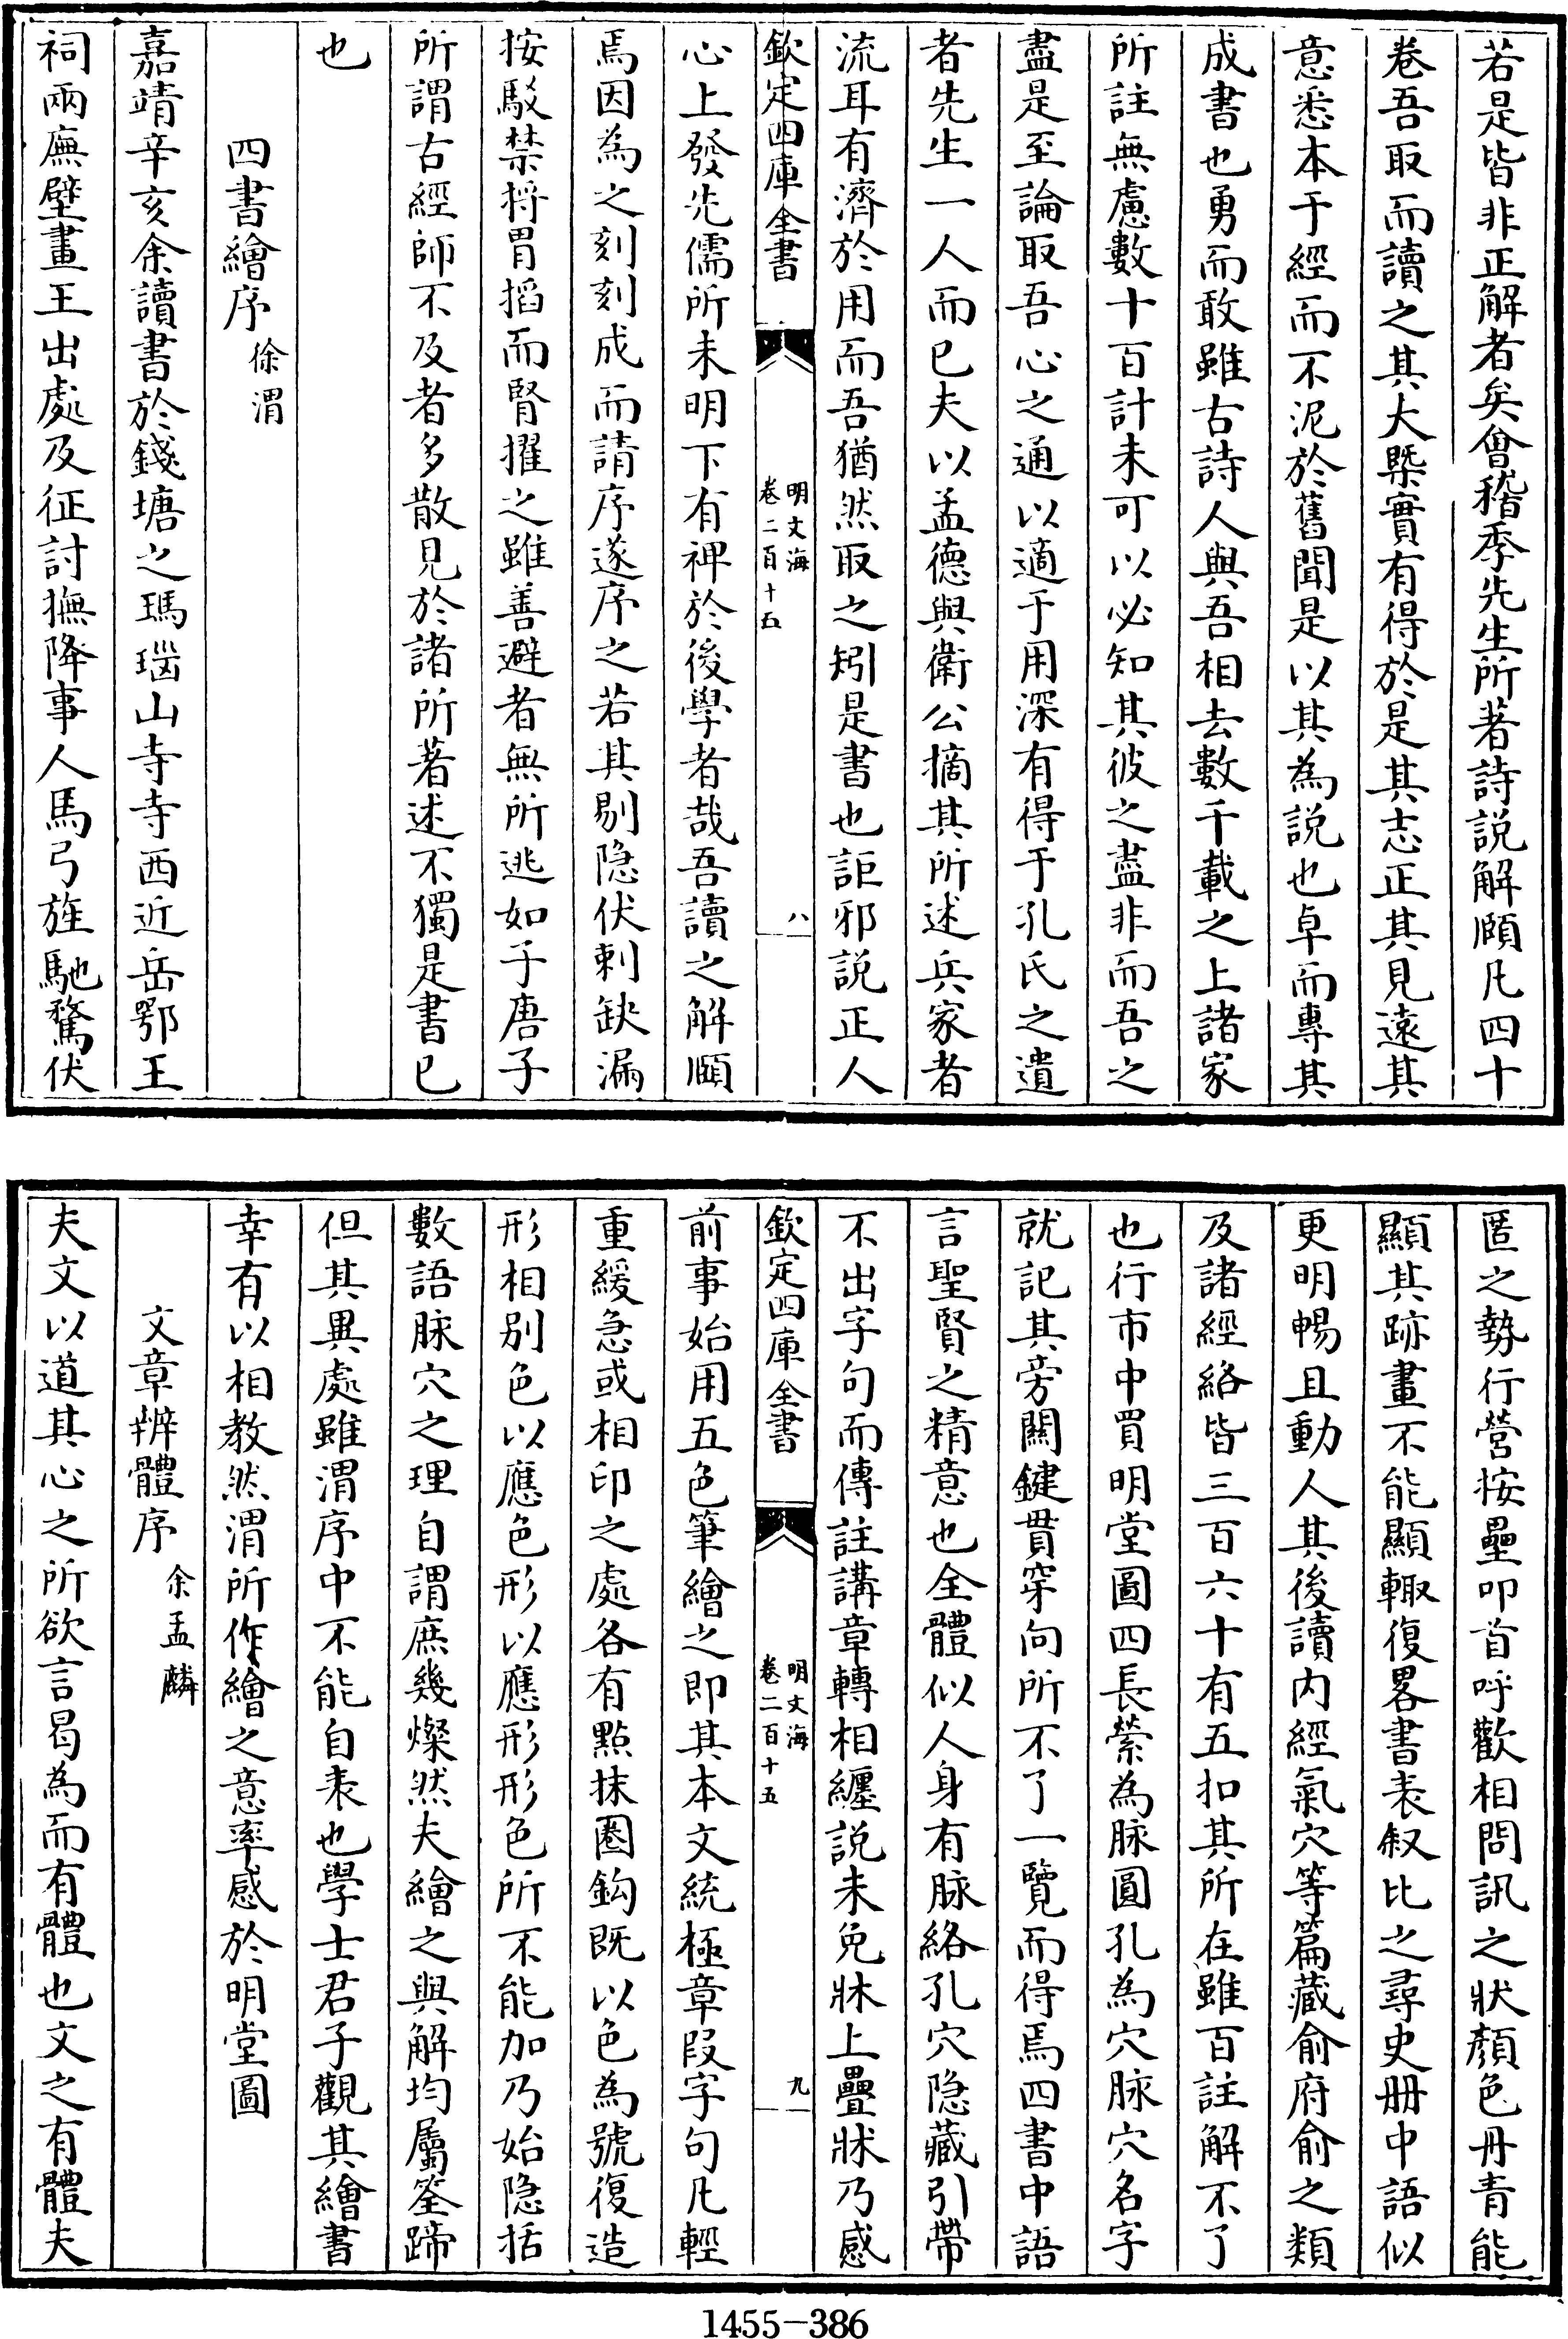 若是皆非正解者矣會稽季先生所著詩說解頤凡四十
卷吾取而讀之其大槩實有得於是其志正其見遠其
意悉本于經而不泥於舊聞是以其為說也卓而專其
成書也勇而敢雖古詩人與吾相去數千載之上諸家
所註無慮數十百計未可以必知其彼之盡非而吾之
盡是至論取吾心之通以適于用深有得于孔氏之遺
者先生一人而已夫以孟德與衛公摘其所述兵家者
流耳有濟於用而吾猶然取之矧是書也詎邪說正人
欽定四庫全書
明文海
卷二百十五
八
心上發先儒所未明下有裨於後學者哉吾讀之解頤
焉因為之刻刻成而請序遂序之若其剔隐伏刺缺漏
按駁禁捋胃搯而腎擢之雖善避者無所逃如于唐子
所謂古經師不及者多散見於諸所著述不獨是書已
也
四書繪序 徐渭
嘉靖辛亥余讀書於錢塘之瑪瑙山寺寺西近岳鄂王
祠兩廡壁畫王出處及征討撫降事人馬弓旌馳騖伏
匿之勢行營按壘叩首呼歡相問訊之狀顏色丹青能
顯其跡畫不能顯輙復畧書表叙比之尋史冊中語似
更明暢且動人其後讀内經氣穴等篇藏俞府俞之類
及諸經絡皆三百六十有五扣其所在雖百註解不了
也行市中買明堂圖四長縈為脉圓孔為穴脉穴名字
就記其旁關鍵貫穿向所不了一覽而得焉四書中語
言聖賢之精意也全體似人身有脉絡孔穴隐藏引帶
不出字句而傳註講章轉相纏說未免牀上疊牀乃感
欽定四庫全書
明文海
卷二百十五
九
前事始用五色筆繪之即其本文統極章段字句凡輕
重緩急或相印之處各有點抹圏鈎既以色為號復造
形相别色以應色形以應形形色所不能加乃始隐括
數語脉穴之理自謂庶幾燦然夫繪之與解均屬筌蹄
但其異處雖渭序中不能自表也學士君子觀其繪書
幸有以相教然渭所作繪之意率感於明堂圖
文章辨體序 余孟麟
夫文以道其心之所欲言曷為而有體也文之有體夫
1455-386